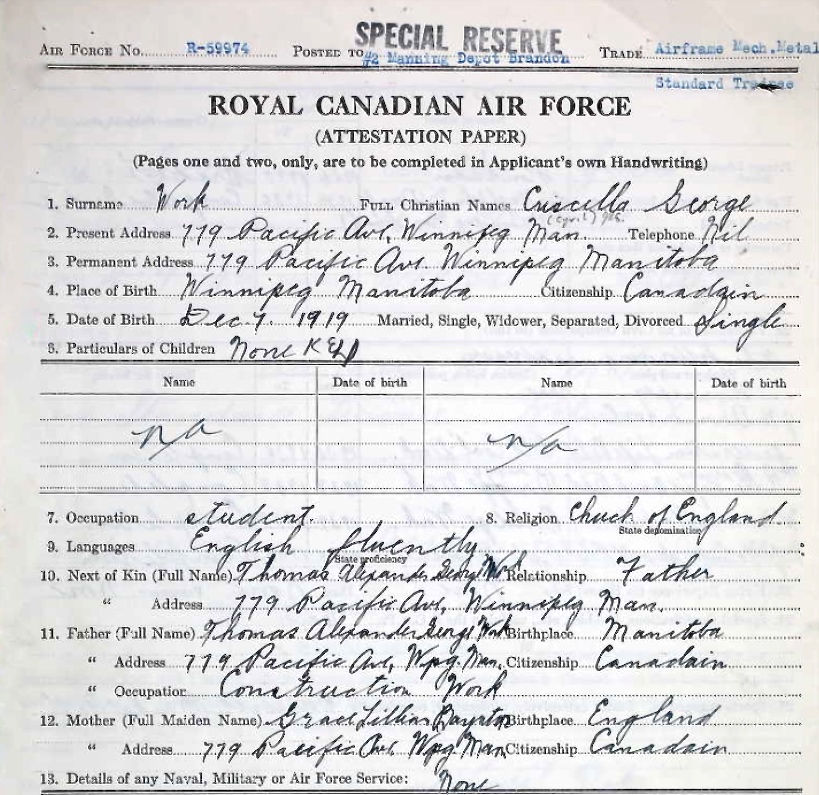 SPECIAL RESERVE
AIR FORCE No. R-59974 POSTED TO #2 Manning Depot Brandon TRADE Airframe Mech.Metal
Standard Trainee
ROYAL CANADIAN AIR FORCE
(ATTESTATION PAPER)
(Pages one and two, only, are to be completed in Applicant's own Handwriting)
1. Surname Work FULL Christian Names Criscilla George
(Cyril)
2. Present Address 779 Pacific Ave, Winnipeg Man. Telephone Nil
3. Permanent Address 779 Pacific Ave. Winnipeg Manitoba
4. Place of Birth Winnipeg Manitoba Citizenship Canadain
5. Date of Birth Dec 7. 1919 Married, Single, Widower, Separated, Divorced Single
6. Particulars of Children None
Name Date of birth Name Date of birth
n/a n/a
7. Occupation student. 8. Religion Chuch of England
State denomination
9. Languages English fluently
State proficiency
10. Next of Kin (Full Name) Thomas Alexander George Work Relationship Father
" Address 779 Pacific Ave, Winnipeg Man.
11. Father (Full Name) Thomas Alexander George Work Birthplace Manitoba
" Address 779 Pacific Ave, Wpg. Man. Citizenship Canadain
" Occupation Construction Work
12. Mother (Full Maiden Name) Grace Lillian Birthplace England
" Address 779 Pacific Ave, Wpg Man Citizenship Canadain
13. Details of any Naval, Military or Air Force Service: None